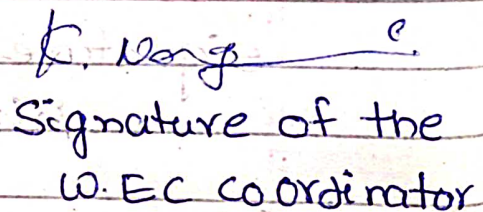 K. Nong
Signature of the
W.EC coordinator